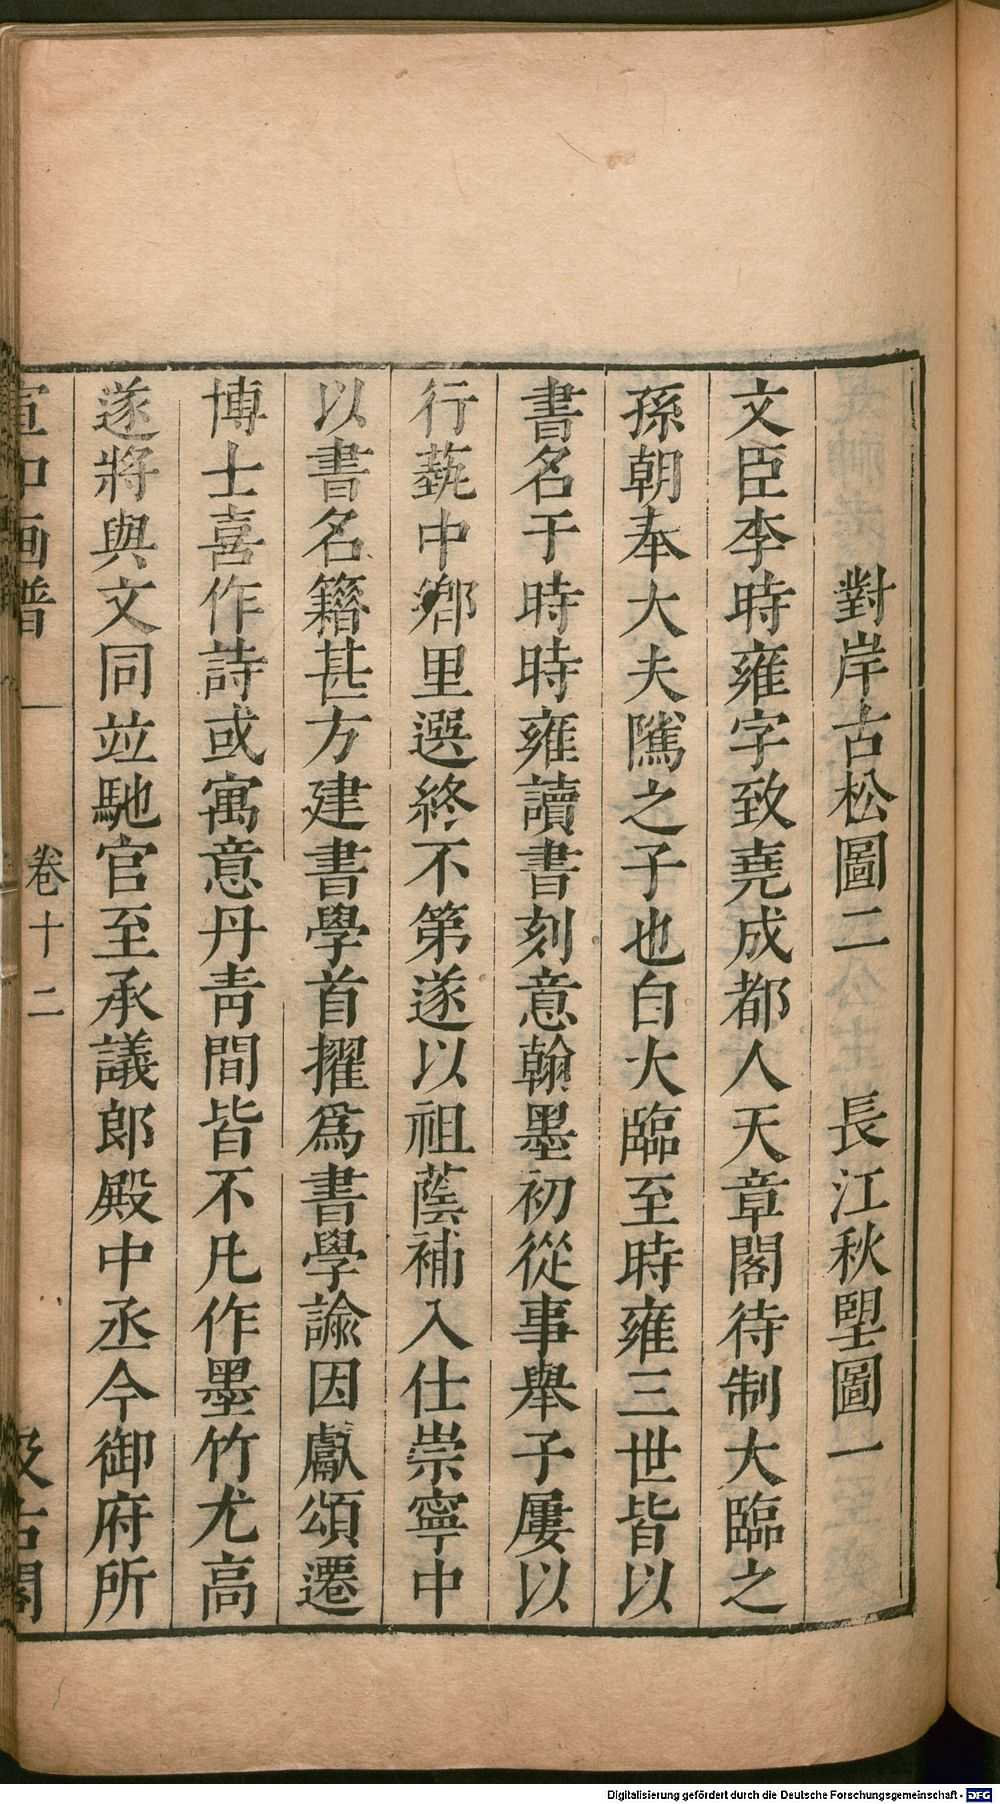 對岸古松圖二　長江秋朢圖一
文臣李時雍字致堯成都人天章閣待制大臨之
孫朝奉大夫隲之子也自大臨至時雍三世皆以
書名于時時雍讀書刻意翰墨初從事舉子屢以
行藝中鄉里選終不第遂以祖蔭補入仕崇寧中
以書名籍甚方建書學首擢爲書學諭因獻頌遷
博士喜作詩或寓意丹靑間皆不凡作墨竹尤高
遂將與文同竝馳官至承議郎殿中丞今御府所
宣和画譜
卷十二
汲古閣
Digitalisierung gefördert durch die Deutsche Forschungsgemeinschaft - DFG